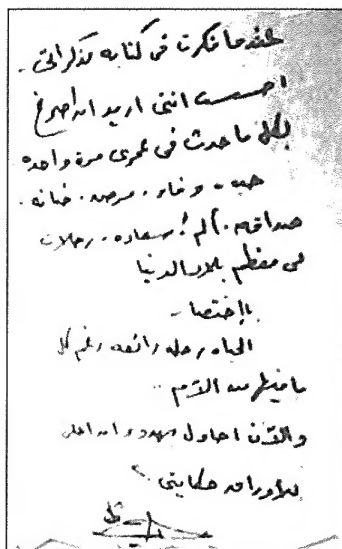 عندما فكرت فى كتابه مذكراتى.
احسست اننى اريد ان اصرخ
بكل ما حدث فى عمرى مرة واحده
حب. وفاء. مرض. خيانه.
صداقه. ألم! سعاده. رحلات
لى معظم بلاد الدنيا
بإختصار
الحياه رحله رائعه رغم كل
ما فيها من آلام..
والآن احاول بهدوء ان احكى
للأوراق حكايتى